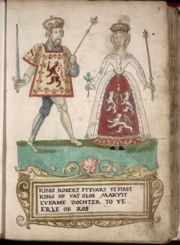 KING ROBERT STEVART YE FIRST
KING OF YAT CLOS MARYIT
EVFAME DOCHTER TO YE
ERLE OF ROS